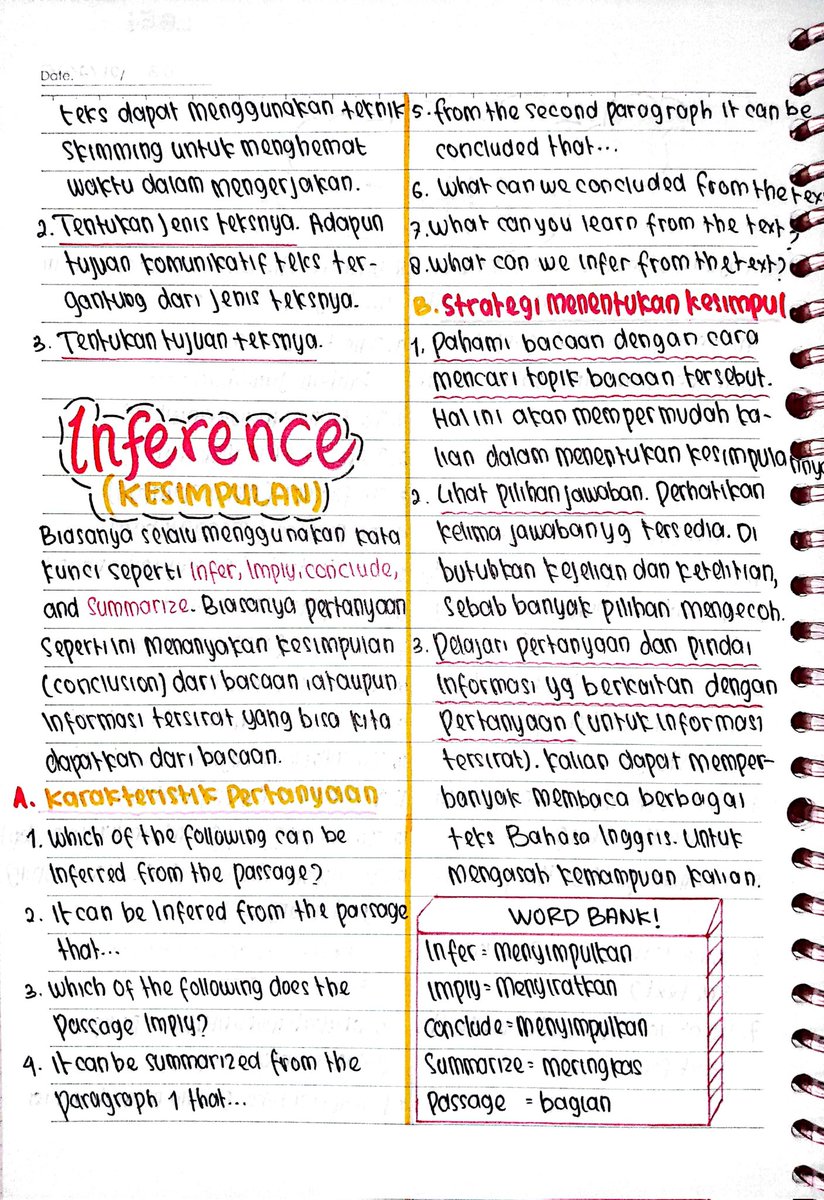 Date.
teks dapat menggunakan teknik
skimming untuk menghemat
waktu dalam mengerjakan.
2. Tentukan jenis teksnya. Adapun
tujuan komunikatif teks ter-
gantung dari jenis teksnya.
3. Tentukan tujuan teksnya.
Inference
(KESIMPULAN)
Biasanya selalu menggunakan kata
kunci seperti infer, imply, conclude,
and summarize. Biasanya pertanyaan
seperti ini menanyakan kesimpulan
(conclusion) dari bacaan, ataupun
informasi tersirat yang bisa kita
dapatkan dari bacaan.
A. Karakteristik Pertanyaan
1. Which of the following can be
inferred from the passage?
2. It can be infered from the passage
that...
3. Which of the following does the
passage imply?
4. It can be summarized from the
paragraph 1 that...
5. from the second paragraph it can be
concluded that...
6. What can we concluded from the tex
7. What can you learn from the text?
8. What can we infer from the text?
B. Strategi menentukan kesimpul
1. Pahami bacaan dengan cara
mencari topik bacaan tersebut.
Hal ini akan mempermudah ka-
lian dalam menentukan kesimpulannya
2. Lihat pilihan jawaban. Perhatikan
kelima jawaban yg tersedia. Di
butuhkan kejelian dan ketelitian,
sebab banyak pilihan mengecoh.
3. Pelajari pertanyaan dan pindai
informasi yg berkaitan dengan
pertanyaan (untuk informasi
tersirat). Kalian dapat memper-
banyak membaca berbagai
teks Bahasa Inggris. Untuk
mengasah kemampuan kalian.
WORD BANK!
Infer = menyimpulkan
Imply = Menyiratkan
Conclude = menyimpulkan
Summarize = meringkas
Passage = bagian